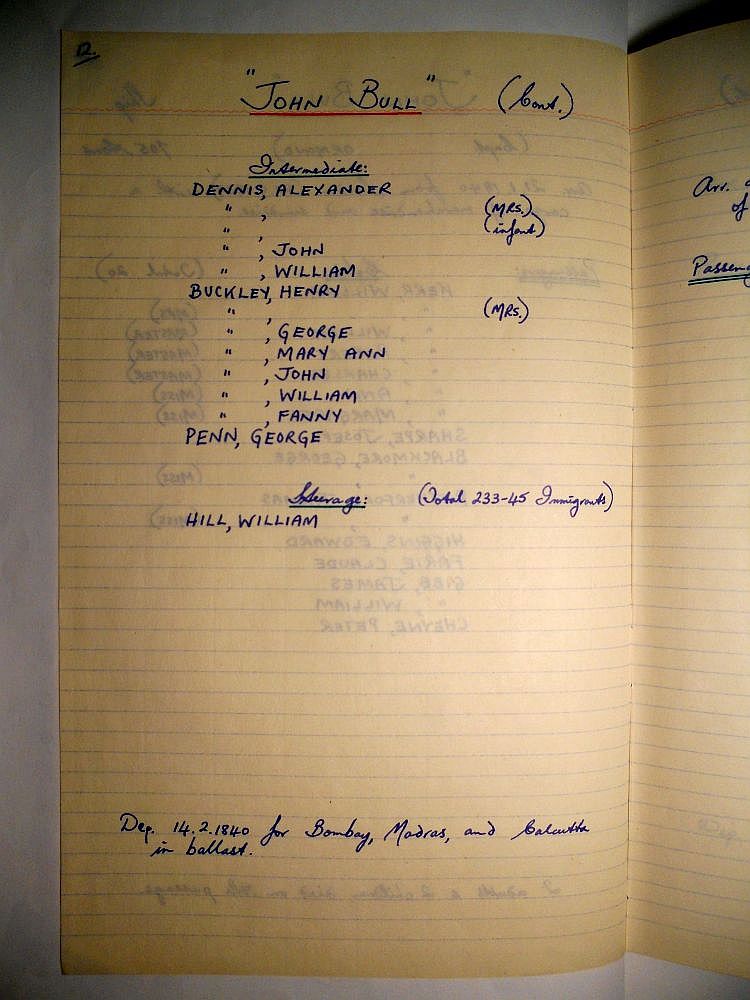 12.
"JOHN BULL" (Cont.)
Intermediate:
DENNIS, ALEXANDER
" , (MRS.)
" , (infant)
" , JOHN
" , WILLIAM
BUCKLEY, HENRY
" , (MRS.)
" , GEORGE
" , MARY ANN
" , JOHN
" , WILLIAM
" , FANNY
PENN, GEORGE
Steerage: (Total 233-45 Immigrants)
HILL, WILLIAM
Dep. 14.2.1840 for Bombay, Madras, and Calcutta
in ballast.
Arr.
of
Passeng